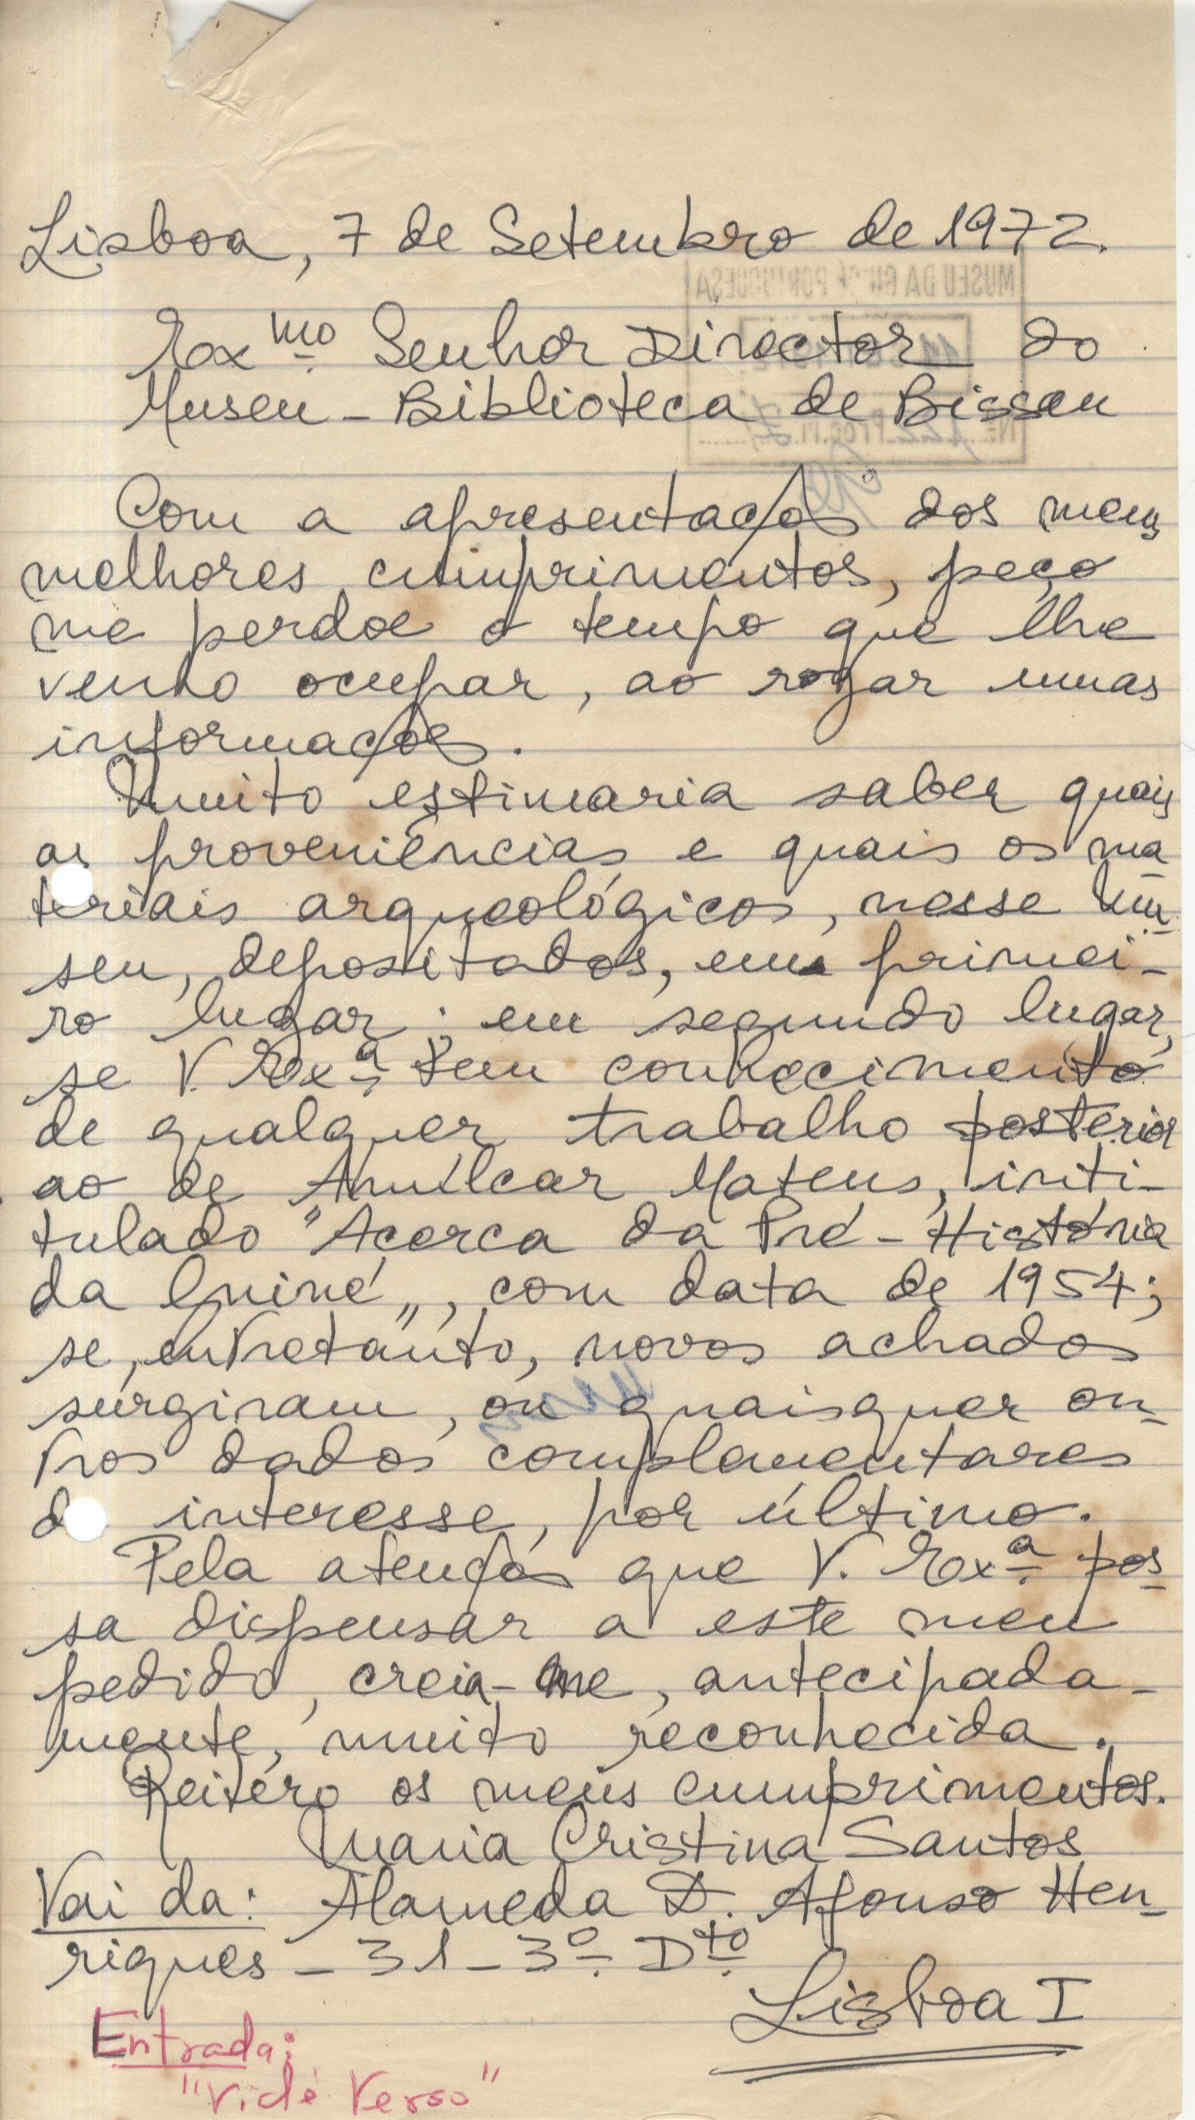 Lisboa, 7 de Setembro de 1972.
Exmo Senhor Director do
Museu - Biblioteca de Bissau
Com a apresentação dos meus
melhores cumprimentos, peço
me perdoe o tempo que lhe
venho ocupar, ao rogar umas
informações.
Muito estimaria saber quais
as proveniências e quais os ma-
teriais arqueológicos, nesse Mu-
seu, depositados, em primei-
ro lugar; em segundo lugar,
se V. Exª tem conhecimento
de qualquer trabalho posterior
ao de Amílcar Mateus, inti-
tulado "Acerca da Pré-História
da Guiné", com data de 1954;
se, entretanto, novos achados
surgiram, ou quaisquer ou-
tros dados complementares
de interesse, por último.
Pela atenção que V. Exª pos-
sa dispensar a este meu
pedido, creia-me, antecipada-
mente, muito reconhecida.
Reitero os meus cumprimentos.
Maria Cristina Santos
Vai da: Alameda D. Afonso Hen-
riques - 31 - 3º Dto
Lisboa I
Entrada:
"Vidé Verso"